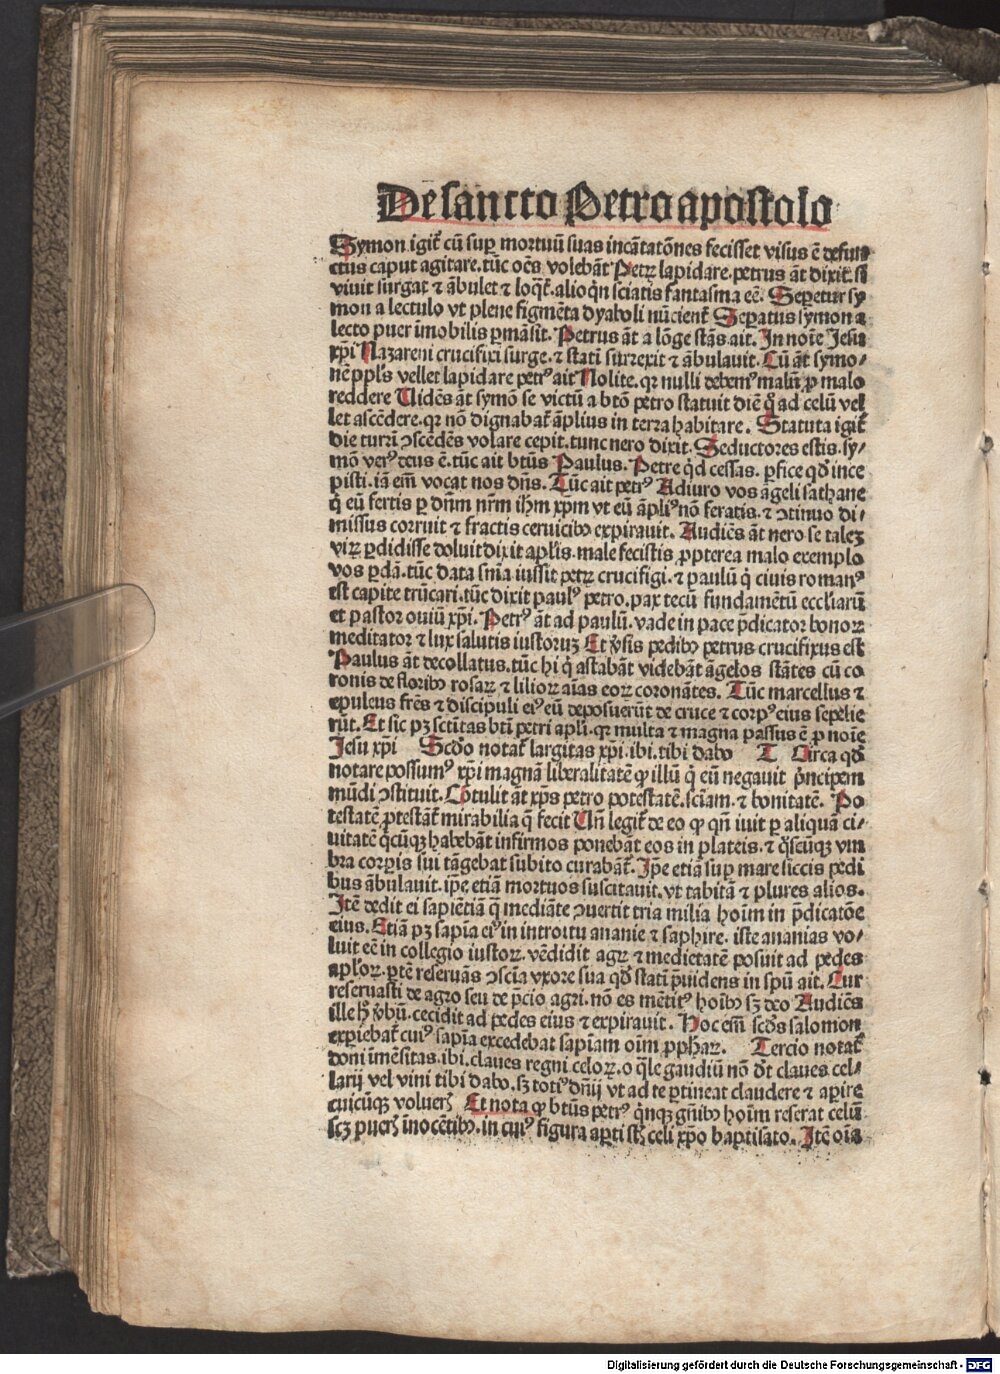 De sancto Petro apostolo
Symon igit᷑ cū sup mortuū suas incātatōnes fecisset visus ē defun
ctus caput agitare. tūc oēs volebāt Petrꝝ lapidare. petrus āt dixit. si
viuit surgat ⁊ ābulet ⁊ loq̄t᷑. alioq̇n sciatis fantasma eē. Sepetur sy
mon a lectulo vt plene figmēta dyaboli nūcient᷑ Sepatus symon a
lecto puer īmobilis ꝑmāsit. Petrus āt a lōge stās ait. In noīe Jesu
xp̄i Nazareni crucifixi surge. ⁊ statī surrexit ⁊ ābulauit. Cū āt symo⸗
nē ppl̄s vellet lapidare petrꝰ ait Nolite. qꝛ nulli debemꝰ malū ꝓ malo
reddere Uidēs āt symō se victū a btō petro statuit diē q̇ ad celū vel
let ascēdere. qꝛ nō dignabat᷑ āplius in terra habitare. Statuta igit᷑
die turrī ꝯscēdēs volare cepit. tunc nero dixit. Seductores estis. sy⸗
mō verꝰ deus ē. tūc ait btūs Paulus. Petre q̇d cessas. ꝑfice qd̄ ince
pisti. iā em̄ vocat nos dn̄s. Tūc ait petrꝰ Adiuro vos āgeli sathane
q̇ eū fertis ꝑ dn̄m nr̄m ihm̄ xpm̄ vt eū āpliꝰ nō feratis. ⁊ ꝯtinuo di⸗
missus corruit ⁊ fractis ceruicibꝰ expirauit. Audiēs āt nero se talez
virꝝ ꝑdidisse doluit dixit apl̄is. male fecistis ꝓpterea malo exemplo
vos ꝑdā. tūc data sn̄ia iussit petrꝝ crucifigi. ⁊ paulū q̇ ciuis romanꝰ
est capite trūcari. tūc dixit paulꝰ petro. pax tecū fundamētū eccl̄iarū
et pastor ouiū xp̄i. Petrꝰ āt ad paulū. vade in pace p̄dicator bonoꝝ
meditator ⁊ lux salutis iustoruz Et v̓sis pedibꝰ petrus crucifixus est
Paulus āt decollatus. tūc hi q̇ astabāt videbāt āgelos stātes cū co
ronis de floribꝰ rosaꝝ ⁊ lilioꝝ aīas eoꝝ coronātes. Tūc marcellus ⁊
epuleus frēs ⁊ discipuli eiꝰ eū deposuerūt de cruce ⁊ corpꝰ eius sepelie
rūt. Et sic pꝫ scītas btī petri apl̄i. qꝛ multa ⁊ magna passus ē ꝓ noīe
Jesu xp̄i Scd̄o notat᷑ largitas xp̄i. ibi. tibi dabo T Circa qd̄
notare possumꝰ xp̄i magnā liberalitatē ꝙ illū q̇ eū negauit p̄ncipem
mūdi ꝯstituit. Cōtulit āt xp̄s petro potestatē. sc̄iam. ⁊ bonitatē. Po
testatē ꝓtestāt᷑ mirabilia q̄ fecit Un̄ legit᷑ de eo ꝙ qn̄ iuit ꝑ aliquā ci⸗
uitatē q̇cūqꝫ habebāt infirmos ponebāt eos in plateis. ⁊ q̇scūqꝫ vm
bra corꝑis sui tāgebat subito curabāt᷑. Ip̄e etiā sup mare siccis pedi
bus ābulauit. ip̄e etiā mortuos suscitauit. vt tabitā ⁊ plures alios.
Itē dedit ei sapiētiā q̄ mediāte ꝯuertit tria milia hoīm in p̄dicatōe
eius. Etiā pꝫ sapīa eiꝰ in introitu ananie ⁊ saphire. iste ananias vo⸗
luit eē in collegio iustoꝝ. vēdidit agꝝ ⁊ medietatē posuit ad pedes
apl̄oꝝ. ꝑtē reseruās ꝯscīa vxore sua qd̄ statī p̄uidens in spū ait. Cur
reseruasti de agro seu de p̄cio agri. nō es mētitꝰ hoībꝰ sꝫ deo Audiēs
ille h̄ v̓bū. cecidit ad pedes eius ⁊ expirauit. Hoc em̄ scd̄s salomon
expiebat᷑ cuiꝰ sapīa excedebat sapīam oīm ꝓphaꝝ. Tercio notat᷑
doni īmēsitas. ibi. claues regni celoꝝ. o q̄le gaudiū nō d̄t claues cel⸗
larij vel vini tibi dabo. sꝫ totiꝰ dn̄ij vt ad te ꝑtineat claudere ⁊ aꝑire
cuicūqꝫ voluer̄ Et nota ꝙ btūs petrꝰ q̇nqꝫ gn̄ibꝰ hoīm reserat celū
scꝫ puer̄ īnocētibꝰ. in cuiꝰ figura aꝑti st̄ celi xp̄o baptisato. Itē oīa
Digitalisierung gefördert durch die Deutsche Forschungsgemeinschaft - DFG